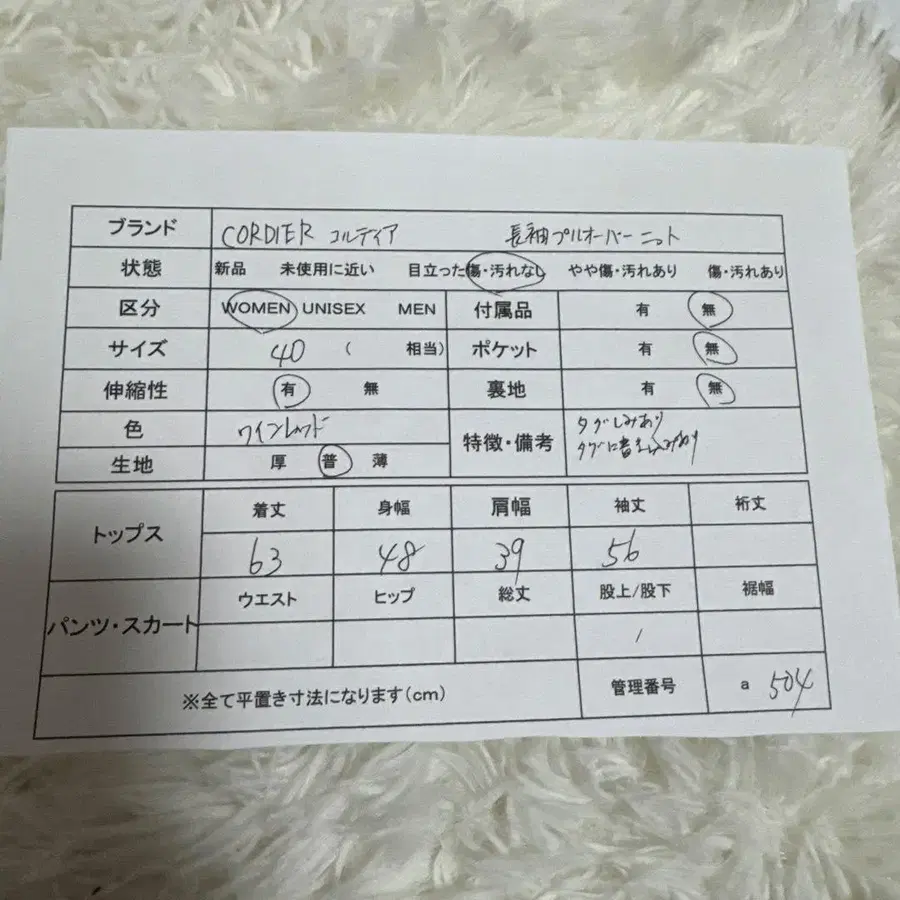 ブランド CORDIER コルディア 長袖プルオーバーニット
状態 新品 未使用に近い 目立った傷・汚れなし やや傷・汚れあり 傷・汚れあり
区分 WOMEN UNISEX MEN 付属品 有 無
サイズ 40 ( 相当) ポケット 有 無
伸縮性 有 無 裏地 有 無
色 ワインレッド 特徴・備考 タグしみあり
タグに書き込みあり
生地 厚 普 薄
トップス 着丈 身幅 肩幅 袖丈 裄丈
63 48 39 56
パンツ・スカート ウエスト ヒップ 総丈 股上/股下 裾幅
/
※全て平置き寸法になります(cm) 管理番号 a 504